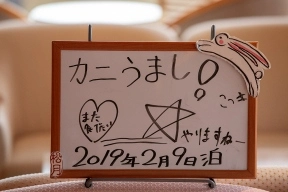 カニうまし!
また
食べたい
やりますねー
2019年2月9日泊